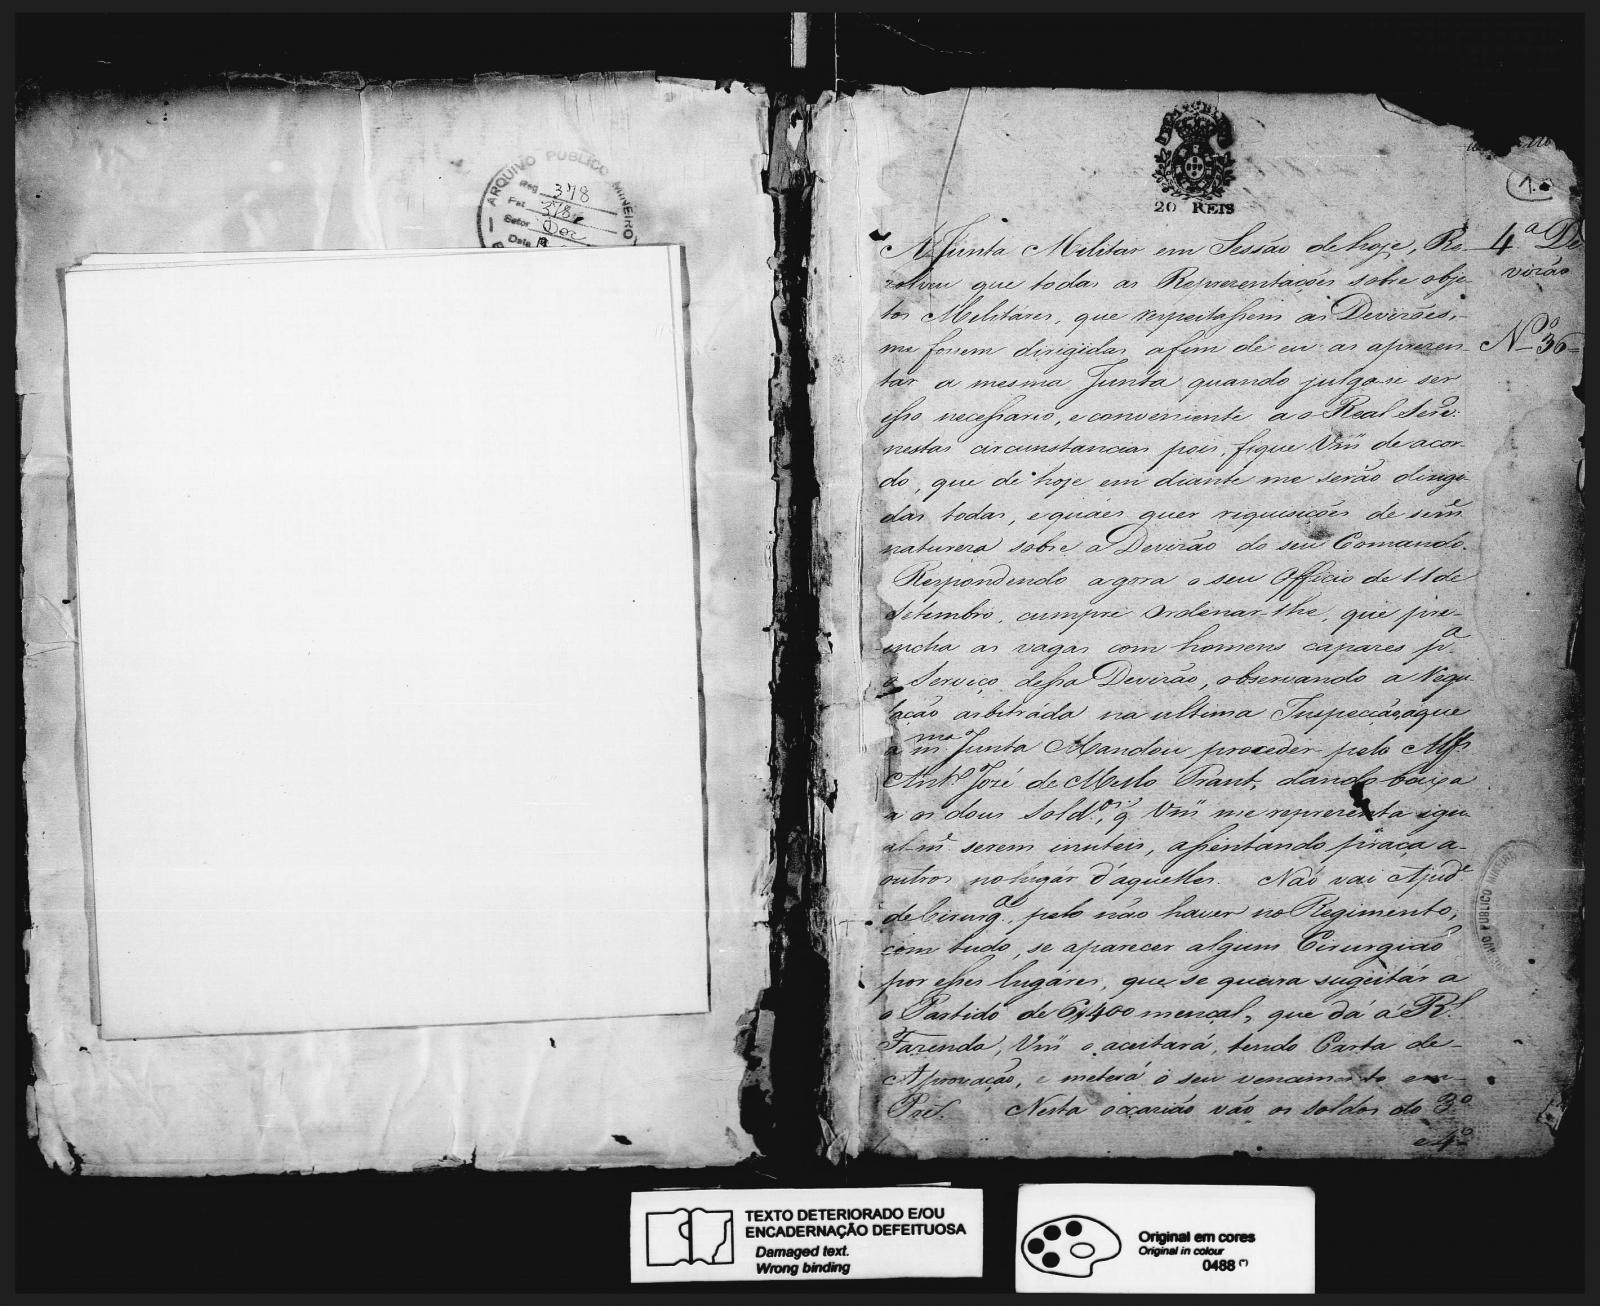 ARQUIVO PUBLICO MINEIRO
Reg 378
Fat 378
Setor Doc
Data
20 REIS
1.
4ª De
vizão
Nº 36
A Junta Militar em Sessão de hoje, Re-
zolveu que todas as Reprezentações sobre obje-
tos Melitáres, que respeitaſsem as Devizões,
me fossem dirigidas afim de eu as aprezen-
tar a mesma Junta quando julgase ser
eſso neceſsario, e conveniente a o Real Serº:
nestas circunstancias pois, fique Vmº de acor-
do, que de hoje em diante me serão dirigi-
das todas, e quáes quer requisições de semº
natureza sobre a Devizão do seu Comando.
Respondendo agora o seu Officio de 11 de
Setembro, cumpre Ordenar-lhe, que pre-
encha as vagas com homens capazes pª
o Serviço deſsa Devizão, observando a Regu-
lação arbitráda na ultima Inspecção, a que
a mma. Junta Mandou proceder pelo Alfs
Antº Jozé de Mello Trant, dando baixa
a os dous Soldos, q Vmº me reprezenta igu-
al mº. serem inuteis, aſsentando praça a-
outros no lugár d'aquelles. Não vai Ajude
de Cirurgª., pelo não haver no Regimento,
com tudo, se aparecer algum Cirurgião
por eſses lugáres, que se queira sugeitár a
o Partido de 6$400 mençal, que dá a Rl.
Fazenda, Vmº o aceitará, tendo Carta de-
Aprovação, e meterá o seu vencimento em-
Pret. Nesta occazião vão os soldos do 3º
e 4º
PUBLICO MINEIRO
TEXTO DETERIORADO E/OU
ENCADERNAÇÃO DEFEITUOSA
Damaged text.
Wrong binding
Original em cores
Original in colour
0488 (*)